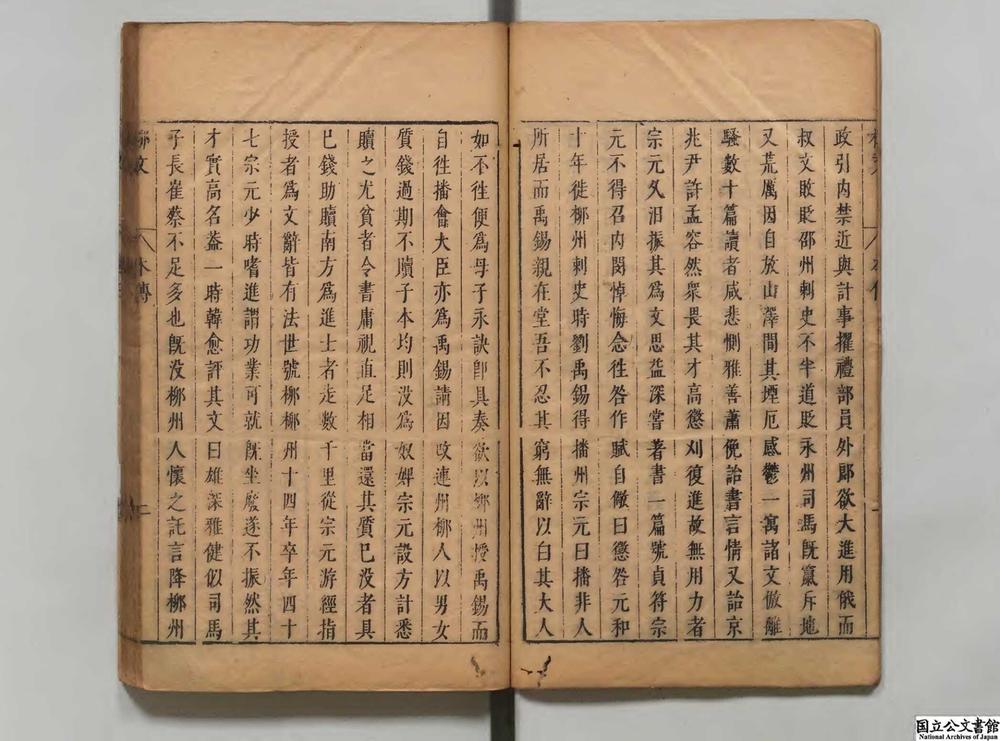 政引内禁近與計事擢禮部員外郎欲大進用俄而
叔文敗貶邵州刺史不半道貶永州司馬既竄斥地
又荒厲因自放山澤間其堙厄感鬱一寓諸文倣離
騷數十篇讀者咸悲惻雅善蕭俛詒書言情又詒京
兆尹許孟容然衆畏其才高懲刈復進故無用力者
宗元久汨振其爲文思益深嘗著書一篇號貞符宗
元不得召内閔悼悔念徃咎作賦自儆曰懲咎元和
十年徙柳州刺史時劉禹錫得播州宗元曰播非人
所居而禹錫親在堂吾不忍其窮無辭以白其大人
如不徃便爲母子永訣卽具奏欲以柳州授禹錫而
自徃播會大臣亦爲禹錫請因改連州柳人以男女
質錢過期不贖子本均則没爲奴婢宗元設方計悉
贖之尤貧者令書庸視直足相當還其質已没者具
已錢助贖南方爲進士者走數千里從宗元游經指
授者爲文辭皆有法世號柳柳州十四年卒年四十
七宗元少時嗜進謂功業可就既坐廢遂不振然其
才實高名蓋一時韓愈評其文曰雄深雅健似司馬
子長崔蔡不足多也既没柳州人懷之託言降柳州
柳文 本傳 二
国立公文書館
National Archives of Japan